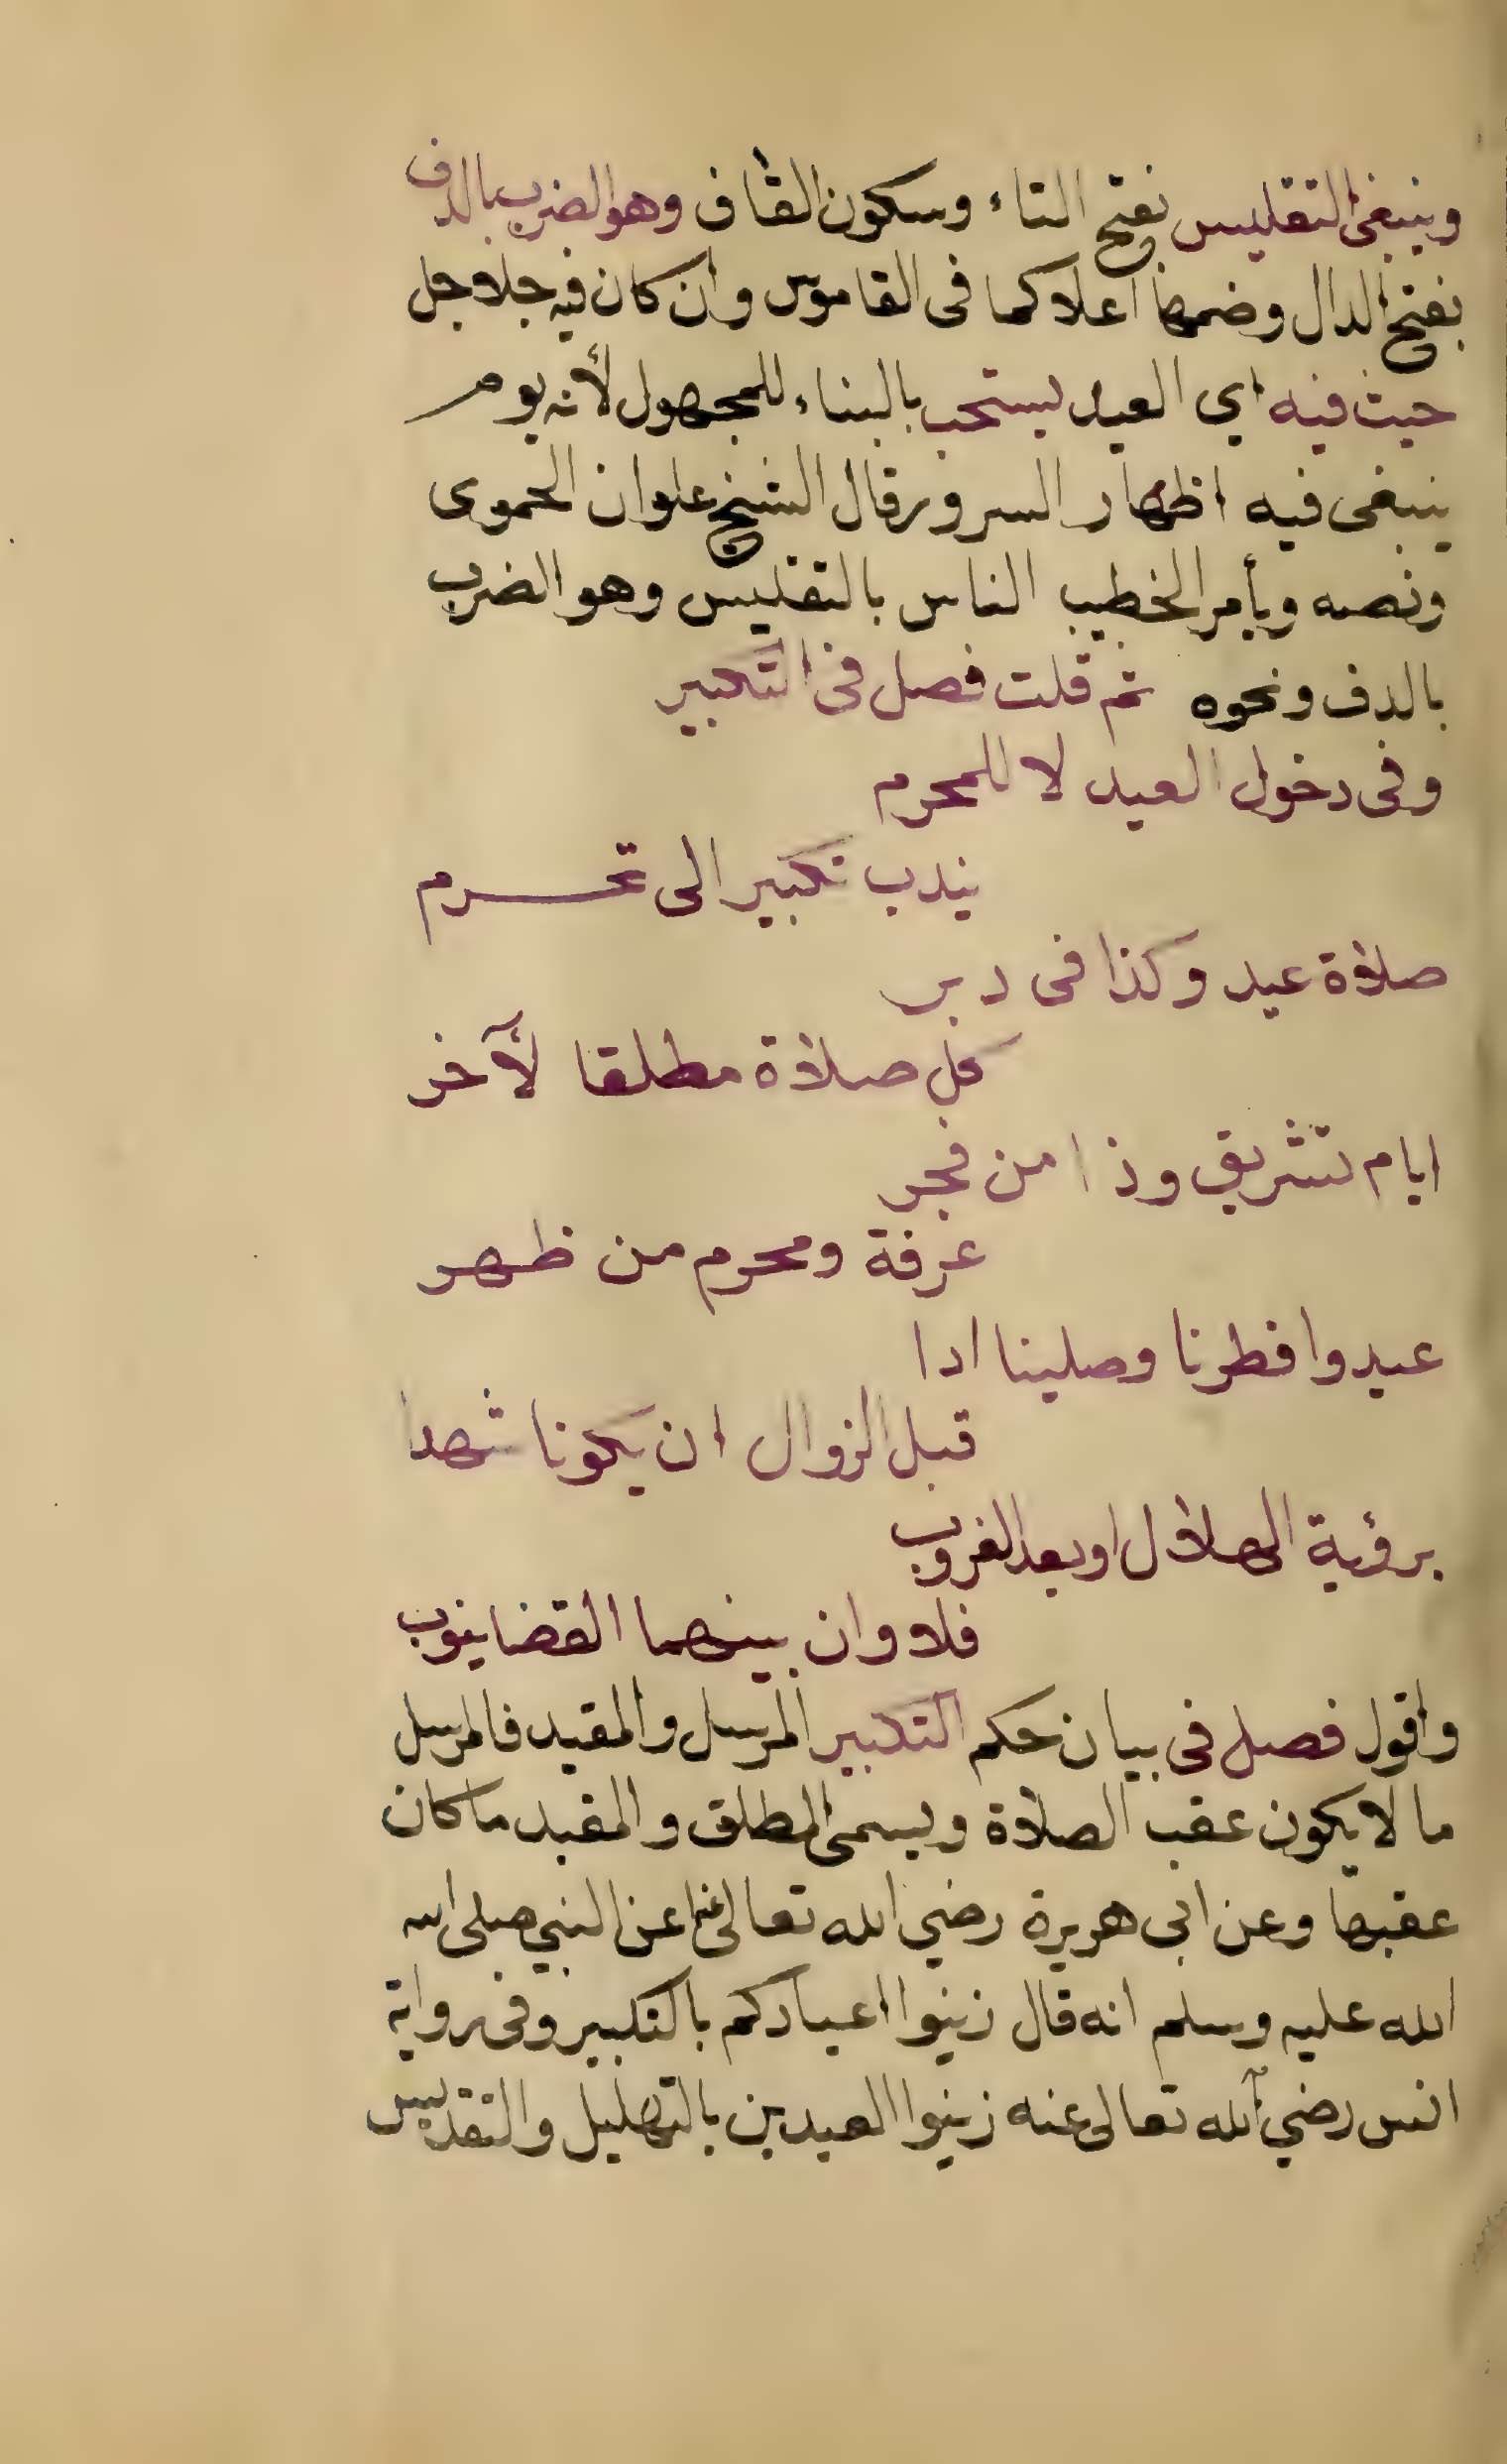 وينبغى التقليس بفتح التاء وسكون القاف وهو الضرب بالدف
بفتح الدال وضمها اعلا كما فى القاموس وان كان فيه جلاجل
حيث فيه اي العيد يستحب بالبناء للمجهول لأنه يوم
ينبغى فيه اظهار السرور قال الشيخ علوان الحموى
ونصه ويأمر الخطيب الناس بالتقليس وهو الضرب
بالدف ونحوه ثم قلت فصل فى التكبير
وفى دخول العيد لا للمحرم
يندب تكبير الى تحرم
صلاة عيد وكذا فى دبر
كل صلاة مطلقا لآخر
ايام تشريق وذا من فجر
عرفة ومحرم من ظهر
عيد وافطرنا وصلينا ادا
قبل الزوال ان يكونا شهدا
برؤية الهلال او بعد الغروب
فلا وان بينهما القضا ينوب
واقول فصل فى بيان حكم التكبير المرسل والمقيد فالمرسل
ما لا يكون عقب الصلاة ويسمى المطلق والمقيد ما كان
عقبها وعن ابى هريرة رضي الله تعالى عنه عن النبي صلى الله
الله عليه وسلم انه قال زينوا اعيادكم بالتكبير وفى رواية
انس رضي الله تعالى عنه زينوا العيدين بالتهليل والتقديس